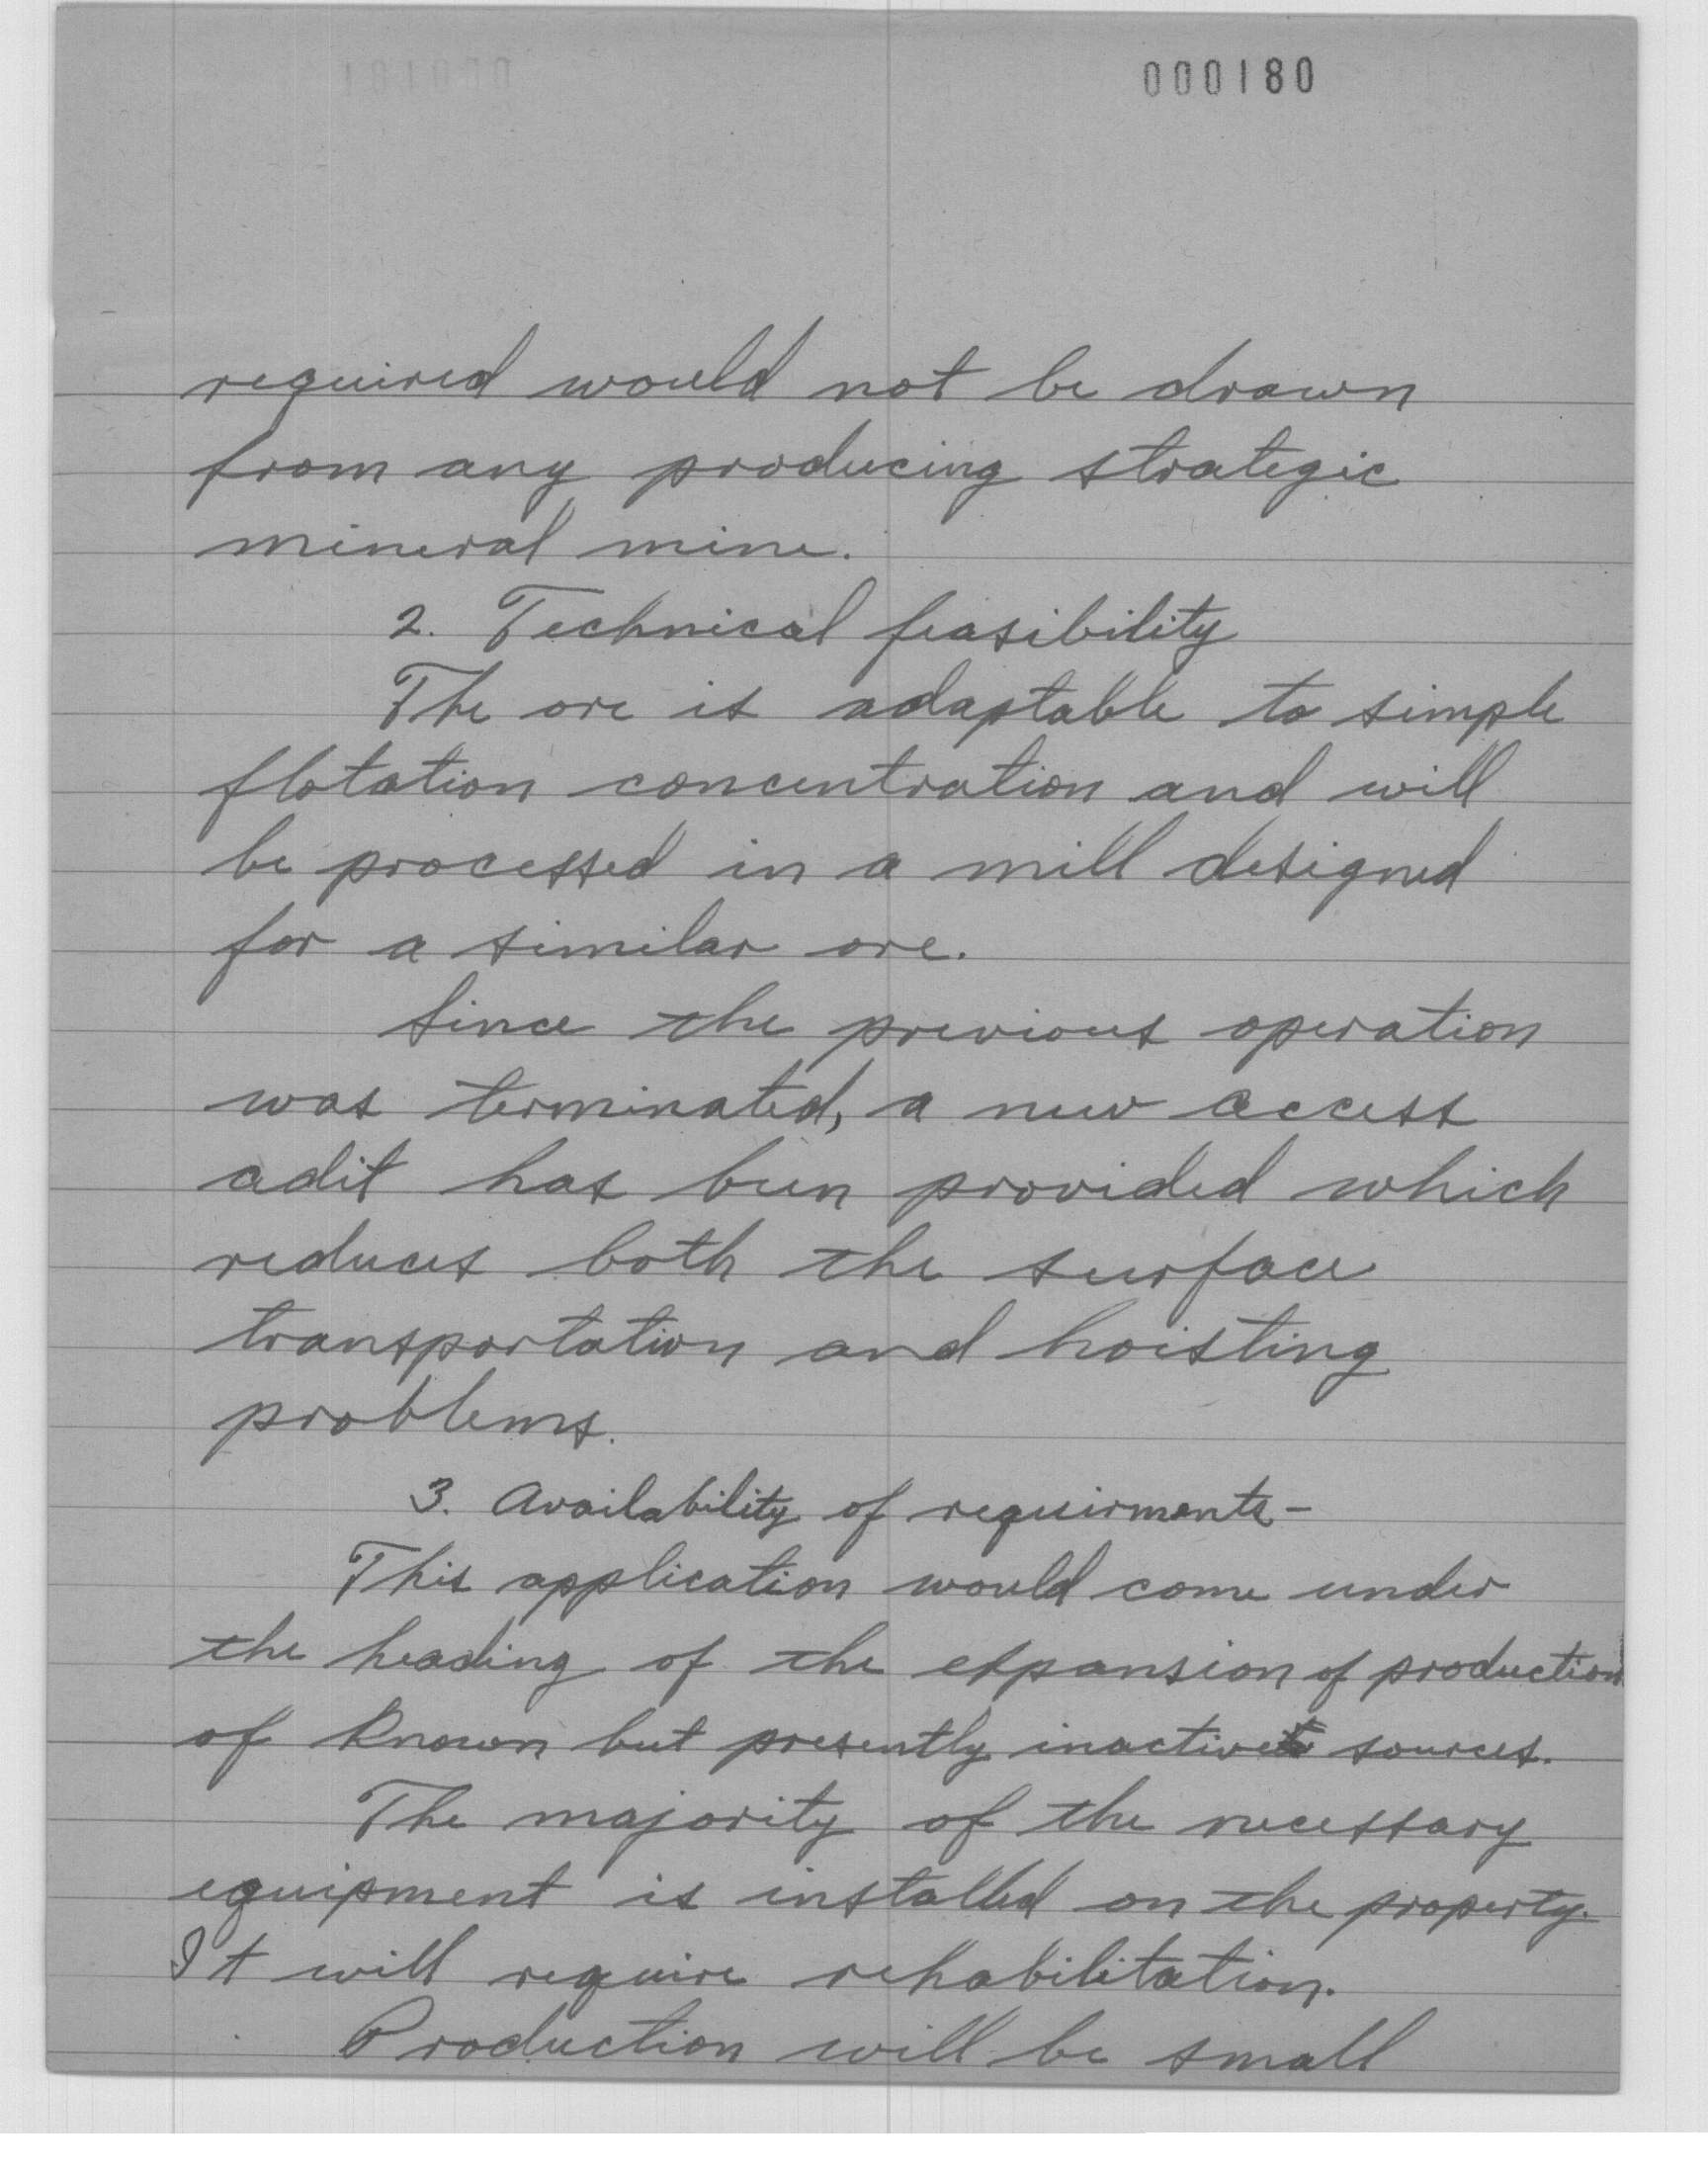 000180
required would not be drawn
from any producing strategic
mineral mine.
2. Technical feasibility
The ore is adaptable to simple
flotation concentration and will
be processed in a mill designed
for a similar ore.
Since the previous operation
was terminated, a new access
adit has been provided which
reduces both the surface
transportation and hoisting
problems.
3. Availability of requirments-
This application would come under
the heading of the expansion of production
of known but presently inactive sources.
The majority of the necessary
equipment is installed on the property.
It will require rehabilitation.
Production will be small